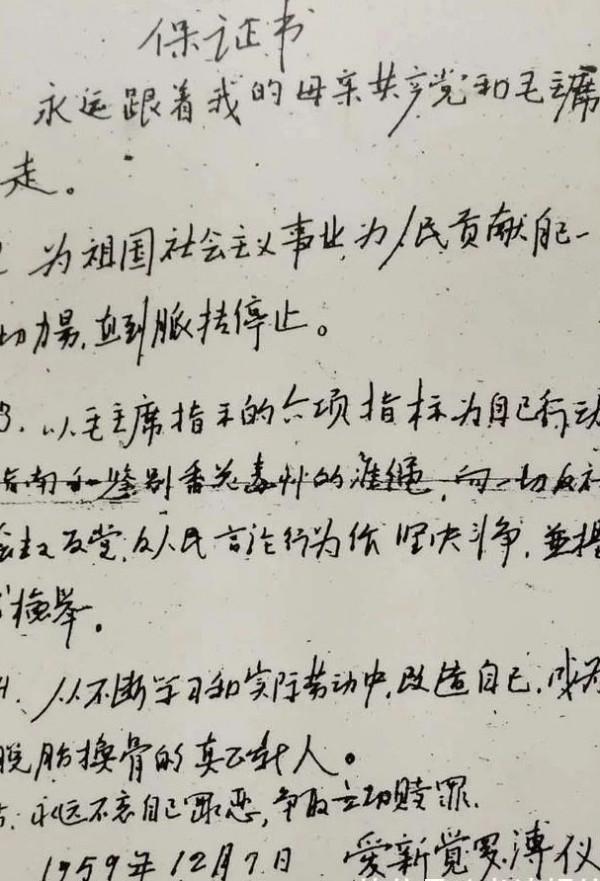 保证书
永远跟着我的母亲共产党和毛主席
走。
为祖国社会主义事业,为人民贡献自己一
切力量,直到脉搏停止。
3. 以毛主席指示的六项指标为自己行动
指南和鉴别香花毒草的准绳,向一切反社
会主义反党,反人民言论行为作坚决斗争,並提
检举。
4. 从不断学习和实际劳动中,改造自己,成为
脱胎换骨的真正新人。
永远不忘自己罪恶,争取立功赎罪.
1959年12月7日 爱新觉罗溥仪